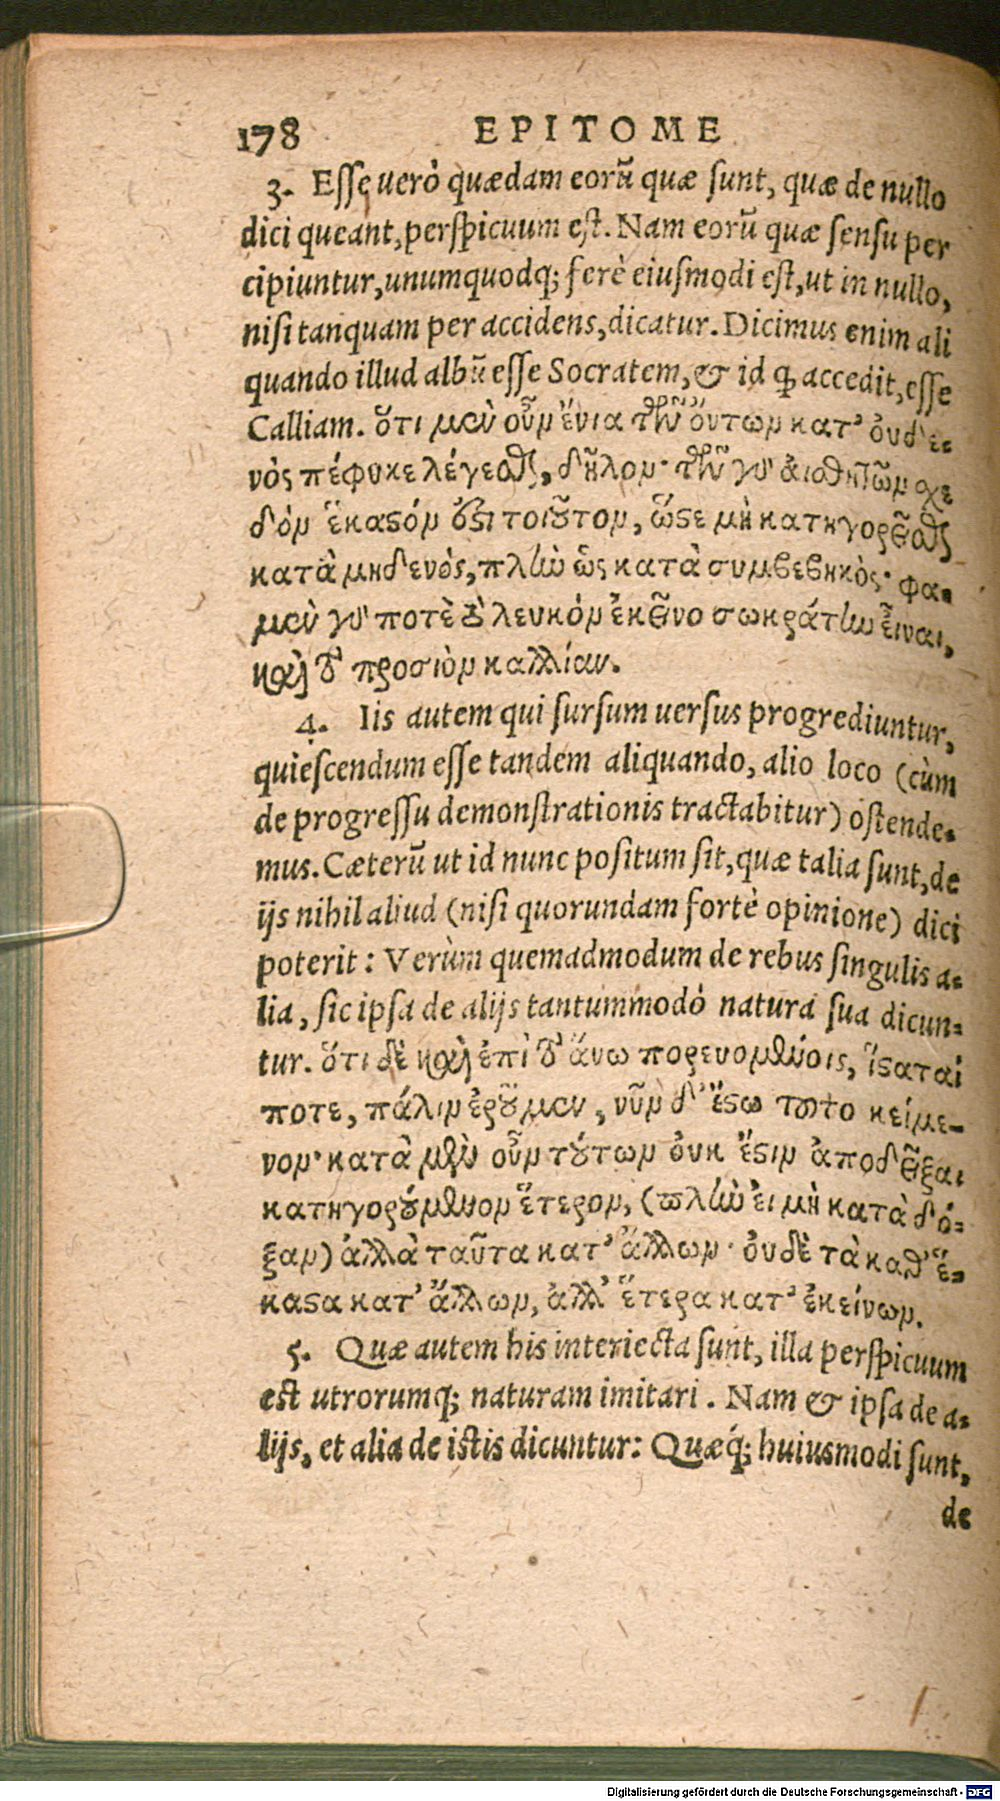 178 EPITOME
3. Esse uerò quædam eorũ quæ sunt, quæ de nullo
dici queant, perspicuum est. Nam eorũ quæ sensu per
cipiuntur, unumquodq; ferè eiusmodi est, ut in nullo,
nisi tanquam per accidens, dicatur. Dicimus enim ali
quando illud albũ esse Socratem, & id ꝙ accedit, esse
Calliam. ὅτι μὲν οὖν ἔνια τῶν ὄντων κατ' οὐδε-
νὸς πέφυκε λέγεσθαι, δῆλον· τῶν γὰρ αἰσθητῶν σχε
δὸν ἕκαστόν ἐστι τοιοῦτον, ὥστε μὴ κατηγορεῖσθαι
κατὰ μηδενός, πλὴν ὡς κατὰ συμβεβηκὸς· φα-
μὲν γὰρ ποτὲ τὸ λευκὸν ἐκεῖνο σωκράτην εἶναι,
καὶ τὸ προσιὸν καλλίαν.
4. Iis autem qui sursum uersus progrediuntur,
quiescendum esse tandem aliquando, alio loco (cùm
de progressu demonstrationis tractabitur) ostende-
mus. Cæterũ ut id nunc positum sit, quæ talia sunt, de
ijs nihil aliud (nisi quorundam fortè opinione) dici
poterit: Verùm quemadmodum de rebus singulis a-
lia, sic ipsa de alijs tantummodò natura sua dicun-
tur. ὅτι δὲ καὶ ἐπὶ τὸ ἄνω πορευομένοις, ἵσταταί
ποτε, πάλιν ἐροῦμεν, νῦν δ' ἔστω τοῦτο κείμε-
νον· κατὰ μὲν οὖν τούτων οὐκ ἔστιν ἀποδεῖξαι
κατηγορούμενον ἕτερον, (πλὴν εἰ μὴ κατὰ δό-
ξαν) ἀλλὰ ταῦτα κατ' ἄλλων· οὐδὲ τὰ καθ' ἕ-
καστα κατ' ἄλλων, ἀλλ' ἕτερα κατ' ἐκείνων.
5. Quæ autem his interiecta sunt, illa perspicuum
est utrorumq; naturam imitari. Nam & ipsa de a-
lijs, et alia de istis dicuntur: Quæq́; huiusmodi sunt,
de
Digitalisierung gefördert durch die Deutsche Forschungsgemeinschaft - DFG